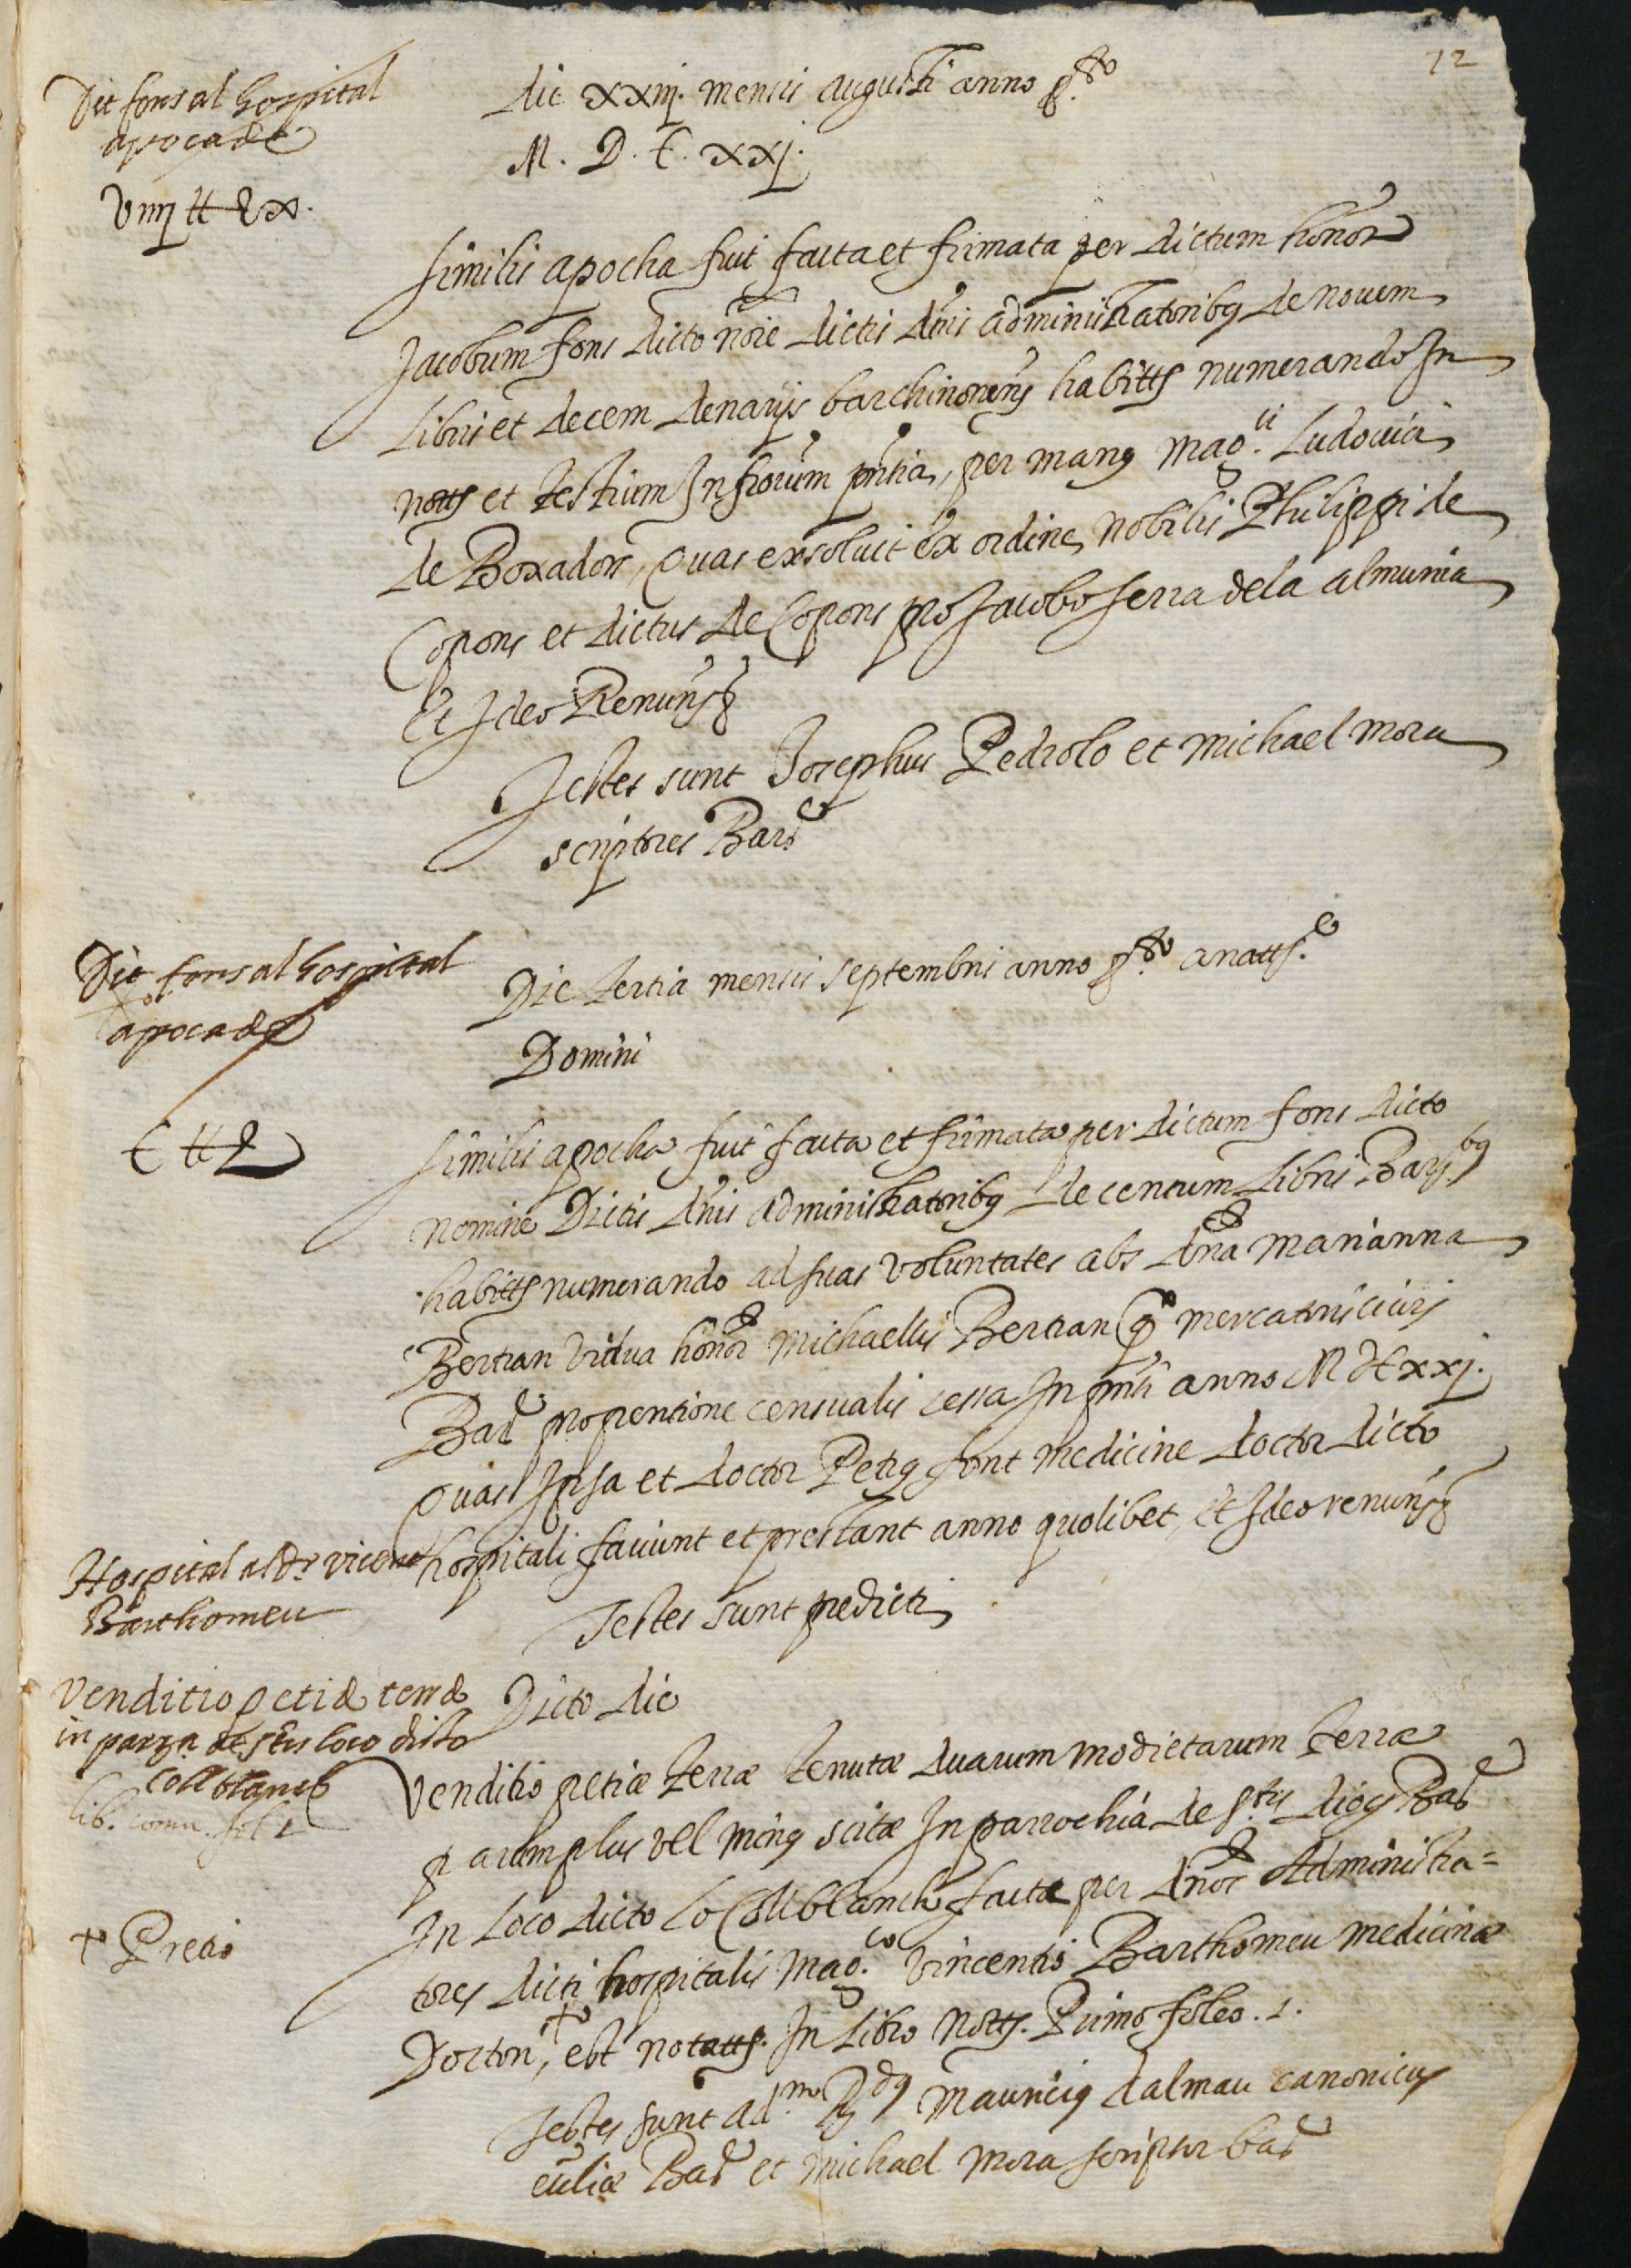 12
Dit fons al hospital
apoca de
VIIII ℔ X
Die xxiij. mensis augusti anno p.to
M. D. C. xxj.
Similis apocha fuit facta et firmata per dictum honor
Jacobum fons dicto noie dictis dnis administratoribus de novem
libris et decem denarijs barchinonens habitis numerando In
notis et testium Infrorum pntia, per manus mag.ci Ludovici
de Boxadors, quas exsolvit ex ordine nobilis Philippi de
Copons et dictus de Copons pro Jacobo serra de la almunia
Et Ideo Renuns
Testes sunt Josephus Pedrolo et michael mora
scriptores Bar
Dit fons al hospital
apoca de
C ℔
Die tertia mensis septembris anno p.to a natts.e
Domini
Similis apocha fuit facta et firmata per dictum fons dicto
nomine Dictis dnis administratoribus de centum libris Bar
habitis numerando ad suas voluntates abs dna marianna
Bertran vidua honor michaellis Bertran q mercatoris civis
Bar pro pentione censualis cessa In pnti anno M DC xxj.
quas Ipsa et doctor Petrus font medicine doctor dicto
hospitali faciunt et prestant anno quolibet, et Ideo renuns
Testes sunt predicti
Hospital al Dr vicent
Barthomeu
Venditio petiæ terræ
in parra. de sts loco dicto
coll blanch
lib. comu. fol 1
Dicto die
Venditio petiæ terræ tenutæ duarum modietarum terræ
parum plus vel minus scitæ In parrochia de s.tis
In loco dicto lo Collblanch factæ per dnos Administra=
tores dicti hospitalis mag.co vincentio Barthomeu medicinæ
Doctori, + est notatts. In libro notts. Primo foleo. 1.
+ Precio
Testes sunt ad.m Rdus mauricius dalmau canonicus
Bar et michael mora scriptor bar